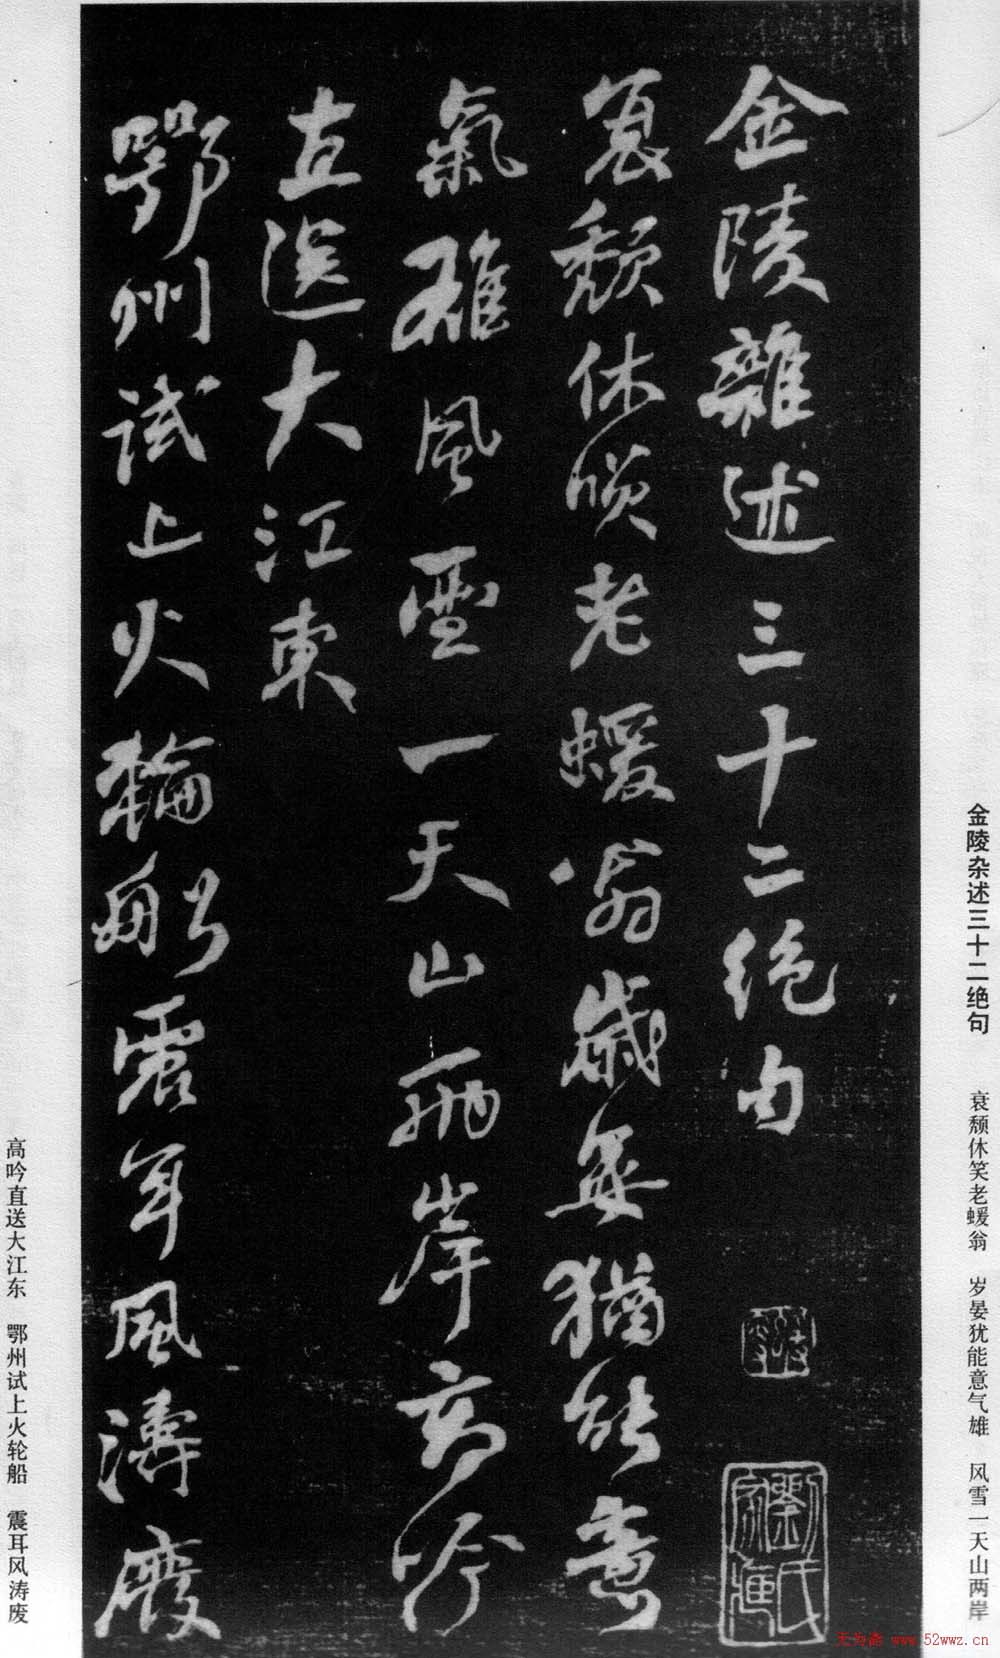 金陵雜述三十二絶句
衰頹休唉老蝯翁歲晏猶能意
氣雄風雪一天山兩岸高吟
直送大江東
鄂州試上火輪船震耳風濤廢
金陵杂述三十二绝句 衰颓休笑老蝯翁 岁晏犹能意气雄 风雪一天山两岸
高吟直送大江东 鄂州试上火轮船 震耳风涛废
www.52wwz.cn